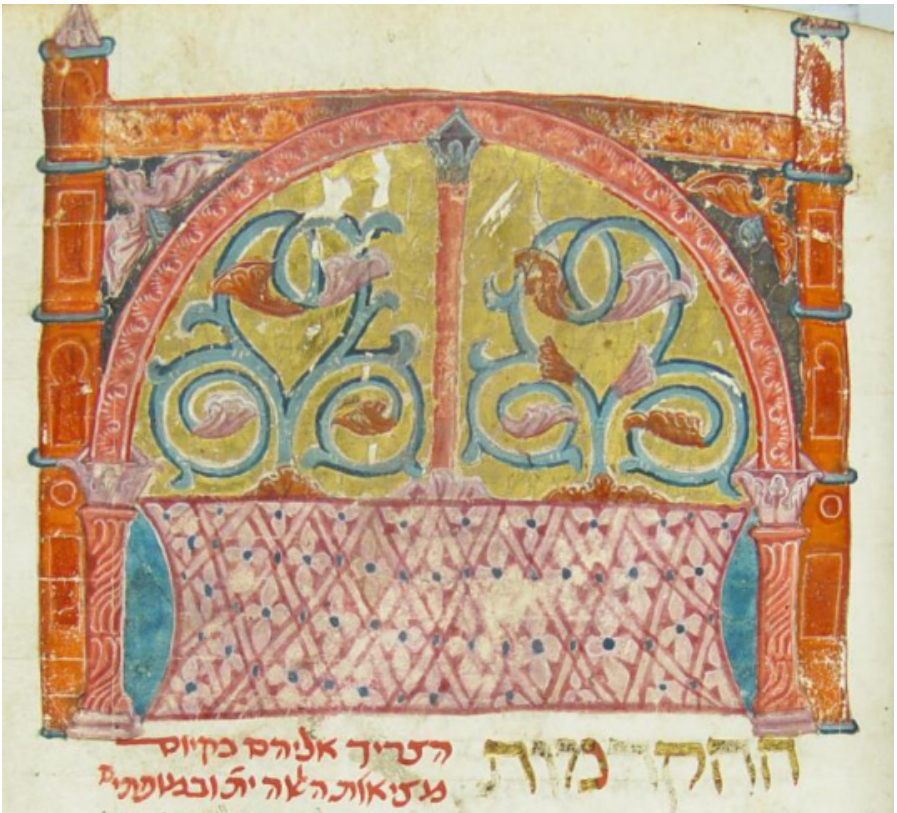 ההקדמות
הצריך אליהם בקיום
מציאות האלוה ית' ובמופתים